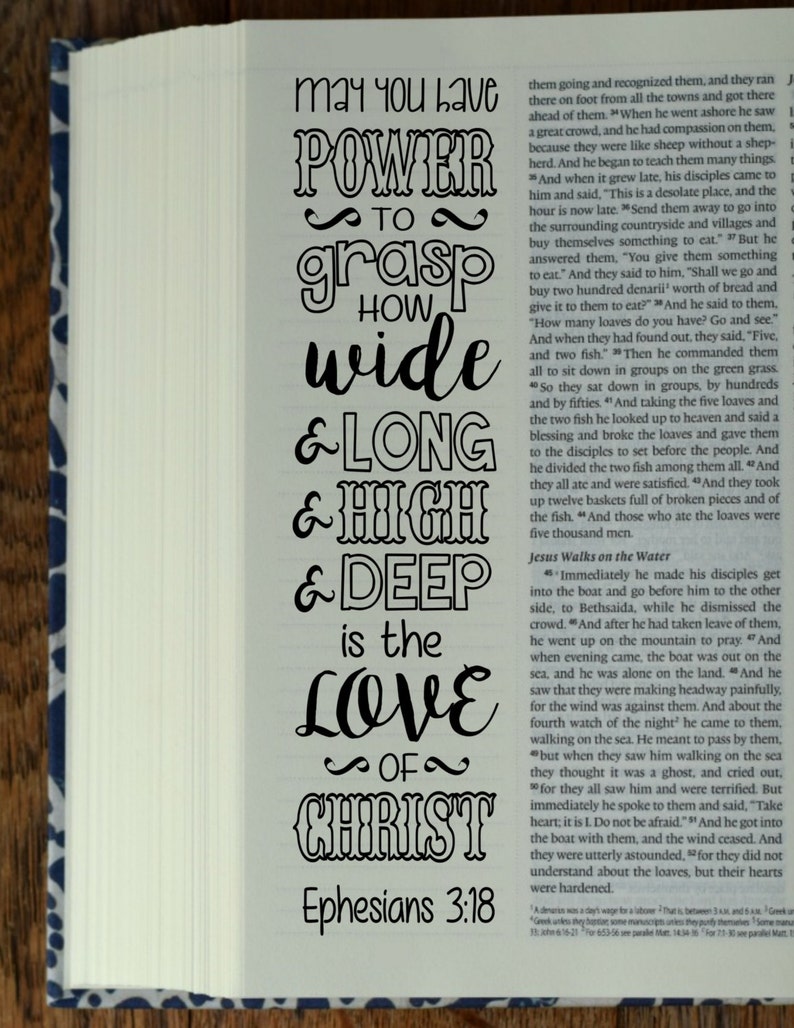 may you have
POWER
TO
grasp
HOW
wide
& LONG
& HIGH
& DEEP
is the
LOVE
OF
CHRIST
Ephesians 3:18
them going and recognized them, and they ran
there on foot from all the towns and got there
ahead of them. 34 When he went ashore he saw
a great crowd, and he had compassion on them,
because they were like sheep without a shep-
herd. And he began to teach them many things.
35 And when it grew late, his disciples came to
him and said, "This is a desolate place, and the
hour is now late. 36 Send them away to go into
the surrounding countryside and villages and
buy themselves something to eat." 37 But he
answered them, "You give them something
to eat." And they said to him, "Shall we go and
buy two hundred denarii1 worth of bread and
give it to them to eat?" 38 And he said to them,
"How many loaves do you have? Go and see."
And when they had found out, they said, "Five,
and two fish." 39 Then he commanded them
all to sit down in groups on the green grass.
40 So they sat down in groups, by hundreds
and by fifties. 41 And taking the five loaves and
the two fish he looked up to heaven and said a
blessing and broke the loaves and gave them
to the disciples to set before the people. And
he divided the two fish among them all. 42 And
they all ate and were satisfied. 43 And they took
up twelve baskets full of broken pieces and of
the fish. 44 And those who ate the loaves were
five thousand men.
Jesus Walks on the Water
45 Immediately he made his disciples get
into the boat and go before him to the other
side, to Bethsaida, while he dismissed the
crowd. 46 And after he had taken leave of them,
he went up on the mountain to pray. 47 And
when evening came, the boat was out on the
sea, and he was alone on the land. 48 And he
saw that they were making headway painfully,
for the wind was against them. And about the
fourth watch of the night2 he came to them,
walking on the sea. He meant to pass by them,
49 but when they saw him walking on the sea
they thought it was a ghost, and cried out,
50 for they all saw him and were terrified. But
immediately he spoke to them and said, "Take
heart; it is I. Do not be afraid." 51 And he got into
the boat with them, and the wind ceased. And
they were utterly astounded, 52 for they did not
understand about the loaves, but their hearts
were hardened.
1 A denarius was a day's wage for a laborer 2 That is, between 3 A.M. and 6 A.M. 3 Greek
4 Greek unless they baptize; some manuscripts unless they purify themselves 5 Some
33; John 6:16-21 For 6:53-56 see parallel Matt. 14:34-36 For 7:1-30 see parallel Matt.